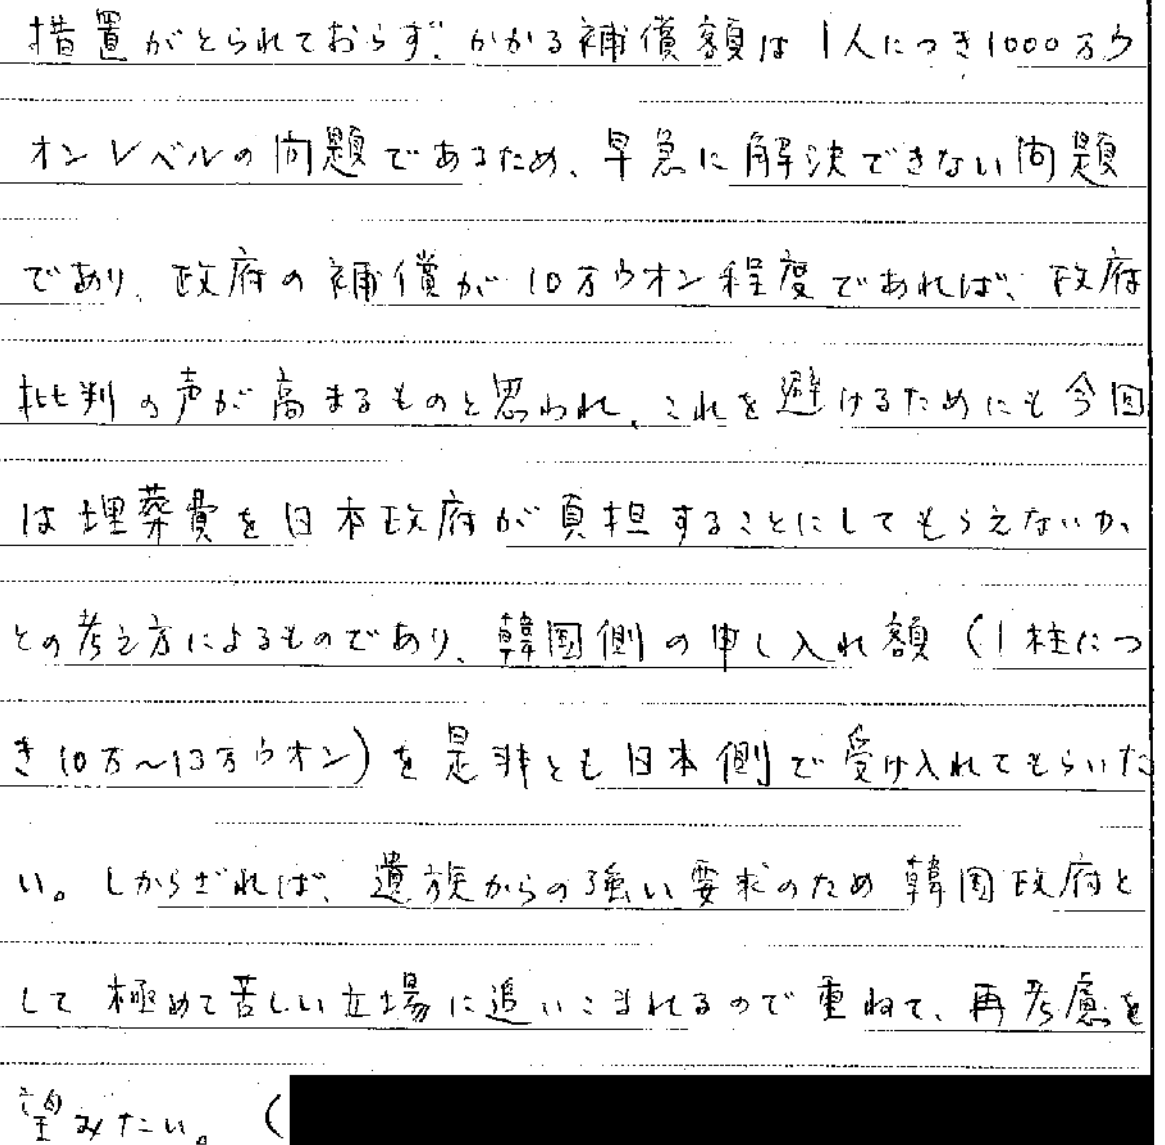 措置がとられておらず、かかる補償額は1人につき1000万ウ
オンレベルの問題であるため、早急に解決できない問題
であり、政府の補償が10万ウオン程度であれば、政府
批判の声が高まるものと思われ、これを避けるためにも今回
は埋葬費を日本政府が負担することにしてもらえないか、
との考え方によるものであり、韓国側の申し入れ額(1柱につ
き10万~13万ウオン)を是非とも日本側で受け入れてもらいた
い。しからざれば、遺族からの強い要求のため韓国政府と
して極めて苦しい立場に追いこまれるので重ねて、再考慮を
望みたい。(